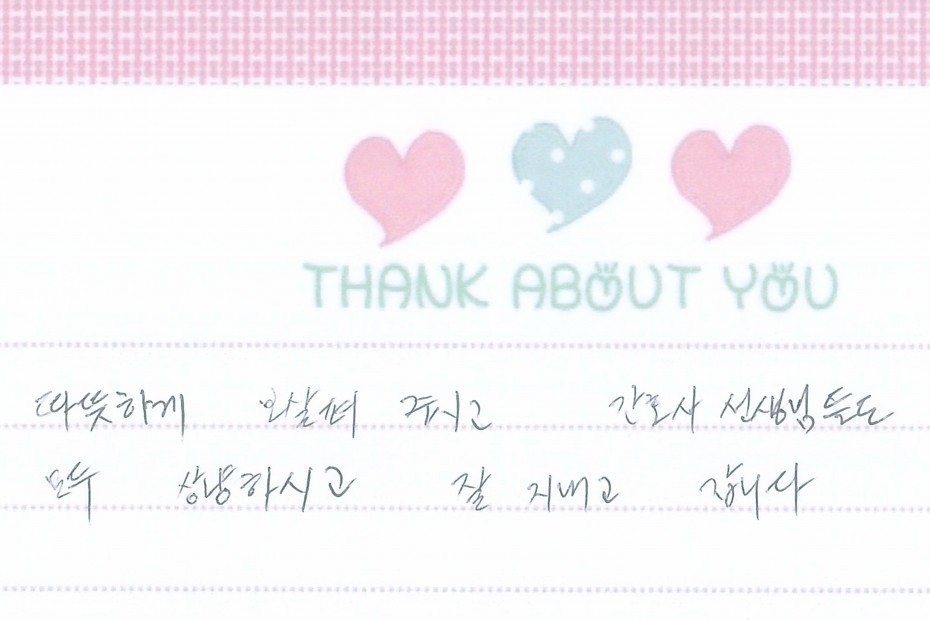 THANK ABOUT YOU
따뜻하게 보살펴 주시고 간호사 선생님들도
모두 상냥하시고 잘 지내고 갑니다